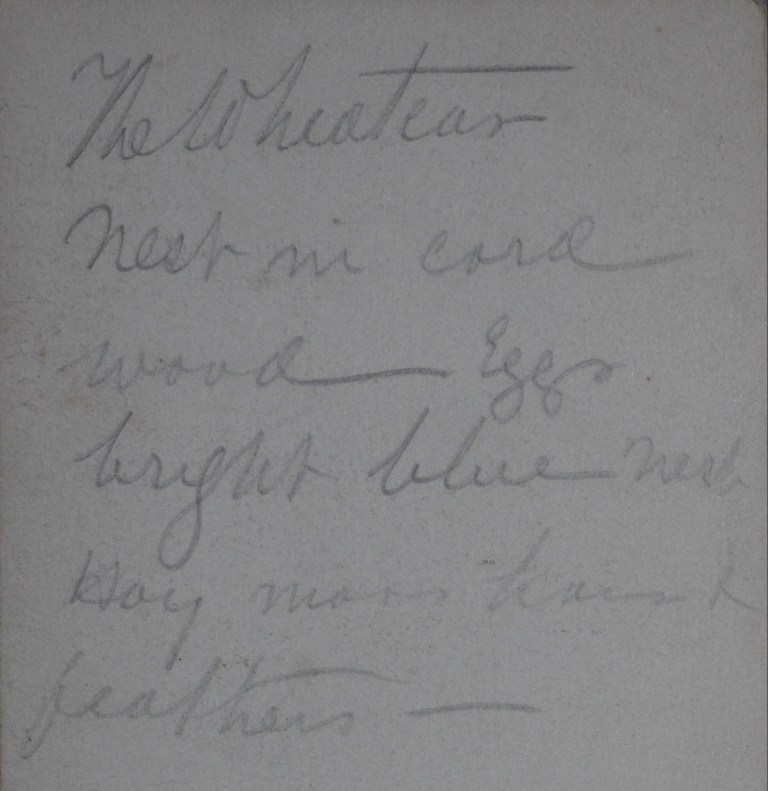 The Wheatear
Nest in cord
wood — Eggs
bright blue nest
Hay moss hair &
feathers —